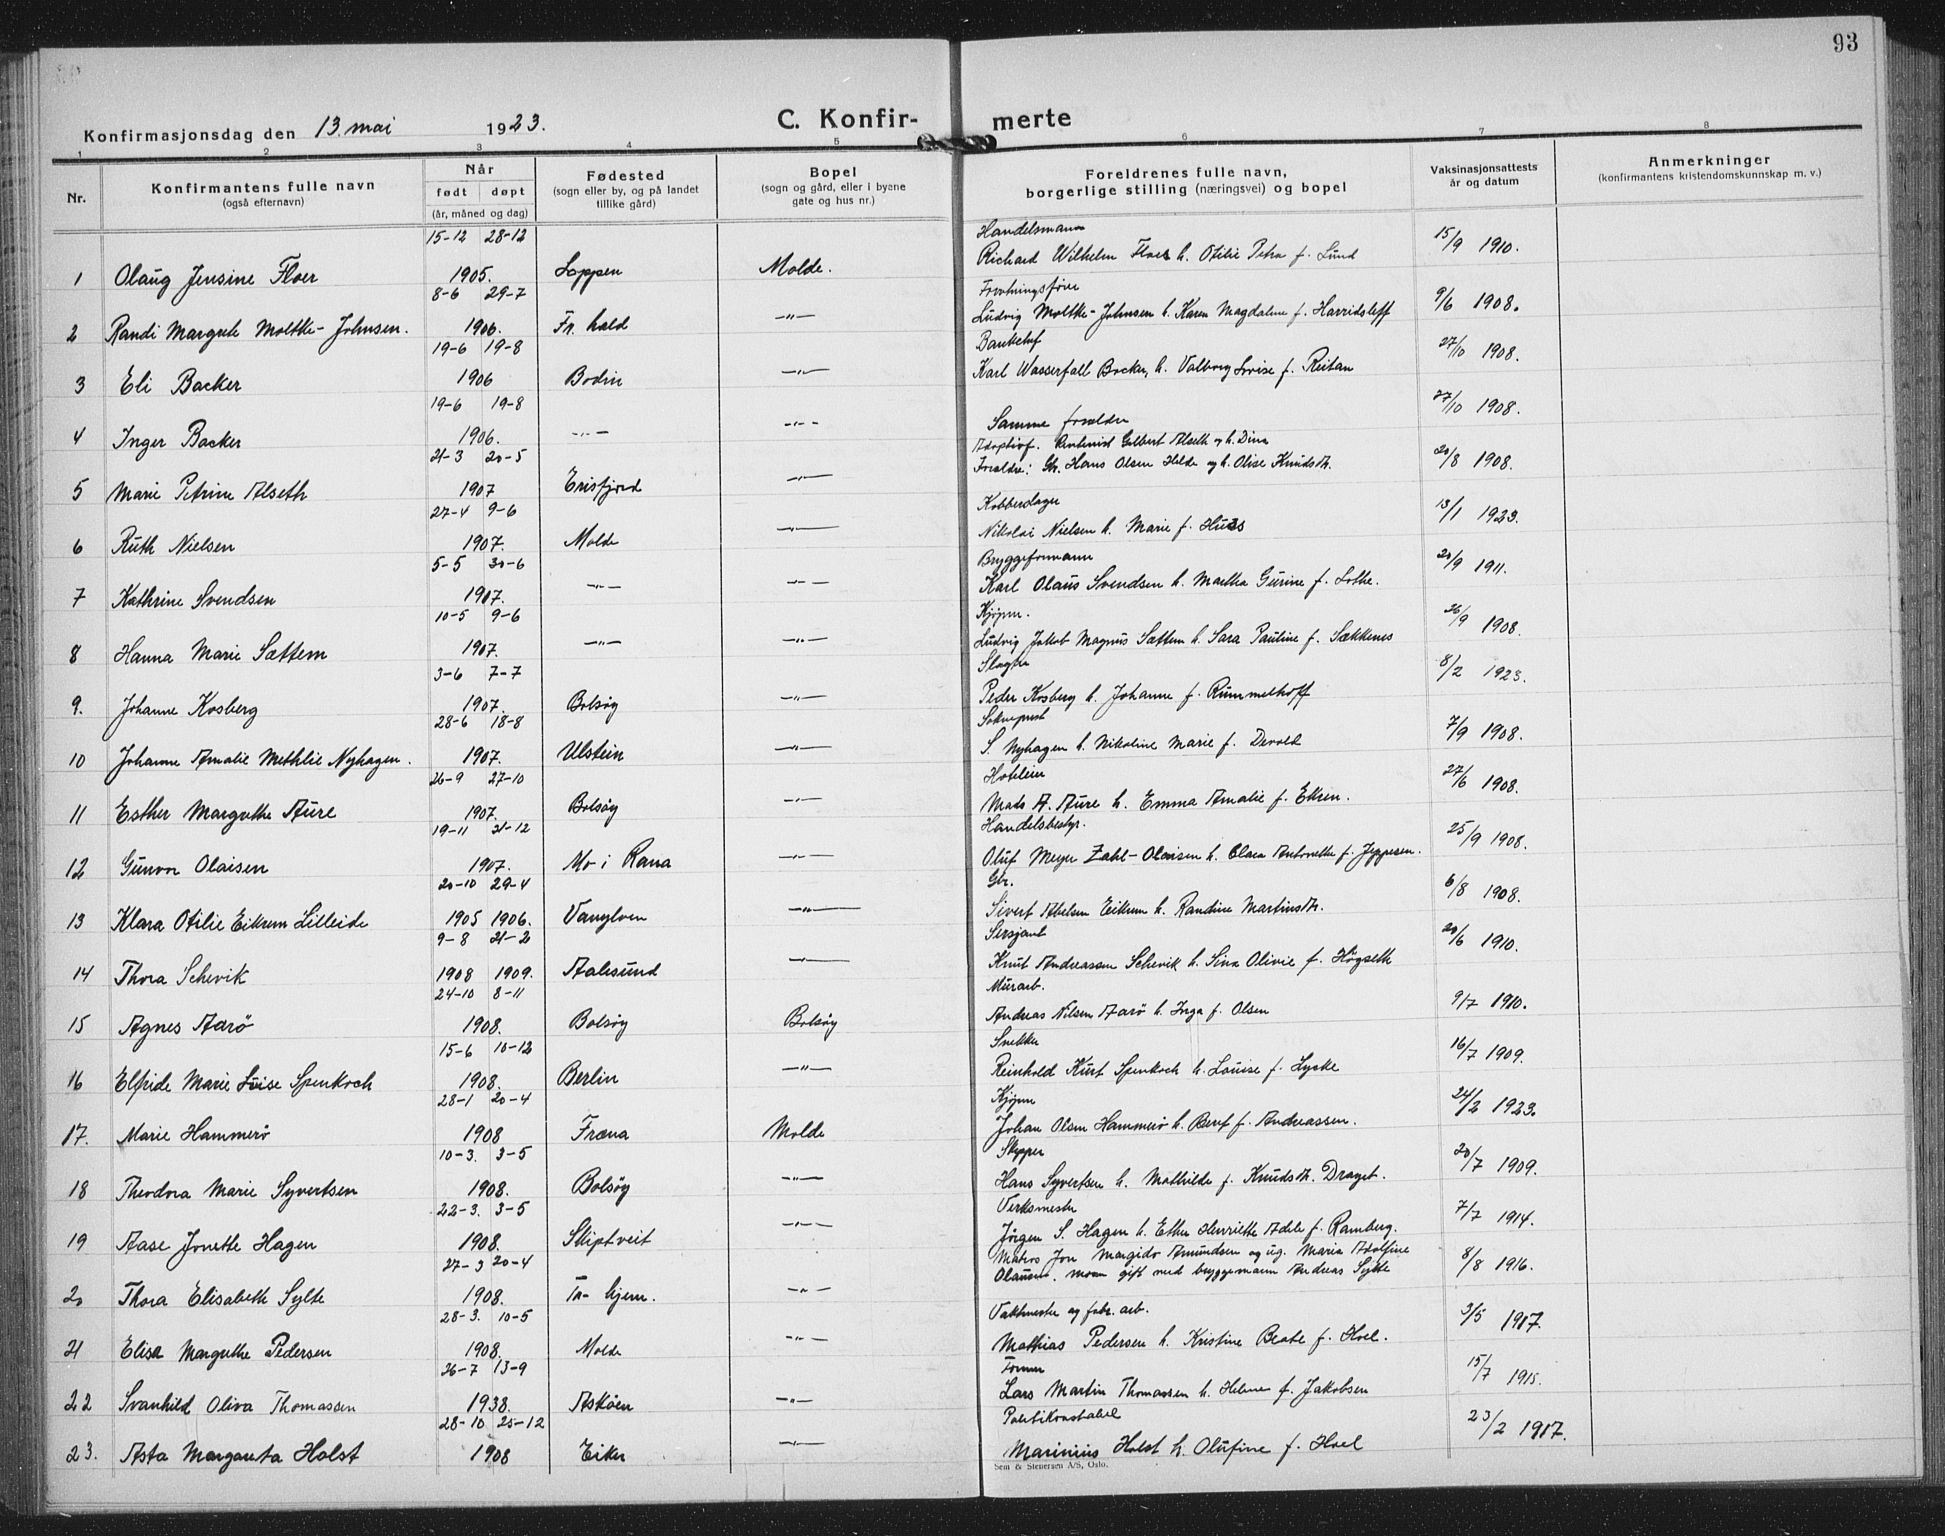 93
Konfirmasjonsdag den 13. mai 1923. C. Konfir- merte
1 2 3 4 5 6 7 8
Nr. Konfirmantens fulle navn (også efternavn) Når født døpt (år, måned og dag) Fødested (sogn eller by, og på landet tillike gård) Bopel (sogn og gård, eller i byene gate og hus nr.) Foreldrenes fulle navn, borgerlige stilling (næringsvei) og bopel Vaksinasjonsattests år og datum Anmerkninger (konfirmantens kristendomskunnskap m. v.)
15-12 28-12 Handelsmann
1 Olaug Jensine Floer 1905. Loppen Molde. Richard Wilhelm Floer h. Otilie Petra f. Lund 15/9 1910.
8-6 29-7 Forretningsfører
2 Randi Margrete Moltke-Johnsen. 1906. Fr. hald —"— Ludvig Moltke-Johnsen h. Karen Magdalene f. Harridsleff 9/6 1908.
19-6 19-8 Bankchef
3 Eli Backer 1906 Bodin —"— Karl Wasserfall Backer, h. Valborg Lovise f. Reitan 27/10 1908.
19-6 19-8
4 Inger Backer 1906. —"— —"— Samme forældre 27/10 1908.
21-3 20-5 Adoptivf. Gilbert Alseth og h. Dina
5 Marie Petrine Alseth 1907 Erisfjord —"— Forældre: Gbr. Hans Olsen Helde og h. Olise Knudsdtr. 20/8 1908.
27-4 9-6 Kobberslager
6 Ruth Nielsen 1907. Molde —"— Nikolai Nielsen h. Marie f. Huus 13/1 1923.
5-5 30-6 Bryggeformann
7 Kathrine Svendsen 1907. —"— —"— Karl Olaus Svendsen h. Martha Gurine f. Lothe. 20/9 1911.
10-5 9-6 Kjøpm.
8 Hanna Marie Sættem 1907. —"— —"— Ludvig Jakob Magnus Sættem h. Sara Pauline f. Sækkenes 26/9 1908.
3-6 7-7 Slagter
9. Johanne Kosberg 1907. Bolsøy —"— Peder Kosberg h. Johanne f. Rummelhoff 8/2 1923.
28-6 18-8 Sokneprest
10 Johanne Amalie Methlie Nyhagen. 1907. Ulstein —"— S. Nyhagen h. Nikoline Marie f. Devold 7/9 1908.
26-9 27-10 Hoteleier
11 Esther Margrethe Aure 1907. Bolsøy —"— Mads A. Aure h. Emma Amalie f. Ekren. 27/6 1908.
19-11 21-12 Handelsbestyr.
12 Gunvor Olaisen 1907. Mo i Rana —"— Oluf Meyer Zahl-Olaisen h. Clara Antonette f. Jeppesen. 25/9 1908.
20-10 29-4 Gbr.
13 Klara Otilie Eikrem Lilleide 1905 1906. Vanylven —"— Sivert Abelsen Eikrem h. Randine Martinsdtr. 6/8 1908.
9-8 21-2 Sersjant
14 Thora Schevik 1908 1909. Aalesund —"— Knut Andreassen Schevik h. Sina Olivie f. Högseth 20/6 1910.
24-10 8-11 Murarb.
15 Agnes Aarø 1908. Bolsøy Bolsøy Andreas Nilsen Aarø h. Inga f. Olsen 9/7 1910.
15-6 10-12 Snekker
16 Elfride Marie Luise Spenkoch 1908. Berlin —"— Reinhold Kurt Spenkoch h. Louise f. Lyske 16/7 1909.
28-1 20-4 Kjøpm
17. Marie Hammerø 1908 Fræna Molde Johan Olsen Hammerø h. f. Andreassen. 24/2 1923.
10-3. 3-5 Skipper
18 Theodora Marie Syvertsen 1908. Bolsøy —"— Hans Syvertsen h. Mathilde f. Knudsdtr. Draget. 20/7 1909.
22-3. 3-5 Verksmester
19 Aase Jonette Hagen 1908. Skiptveit —"— Jörgen S. Hagen h. Henriette Adele f. Ramberg. 7/7 1914.
27-3 20-4 Matros Jon Margido Amundsen og ug. Maria Adolfine
20 Thora Elisabeth Sylte 1908. Tr-hjem. —"— Olausen. moren gift med bryggemann Andreas Sylte 8/8 1916.
28-3. 10-5 Vaktmester og fabr. arb.
21 Elisa Margrethe Pedersen 1908. Molde —"— Mathias Pedersen h. Kristine Beate f. Hoel. 3/5 1917.
26-7 13-9 Former
22 Svanhild Oliva Thomassen 1938. Askøen —"— Lars Martin Thomassen h. Helene f. Jakobsen 15/7 1915.
28-10 25-12 Politikonstabel
23. Asta Margareta Holst 1908 Eiker —"— Marinius Holst h. Olufine f. Hoel 23/2 1917.
Sem & Stenersen A/S, Oslo.